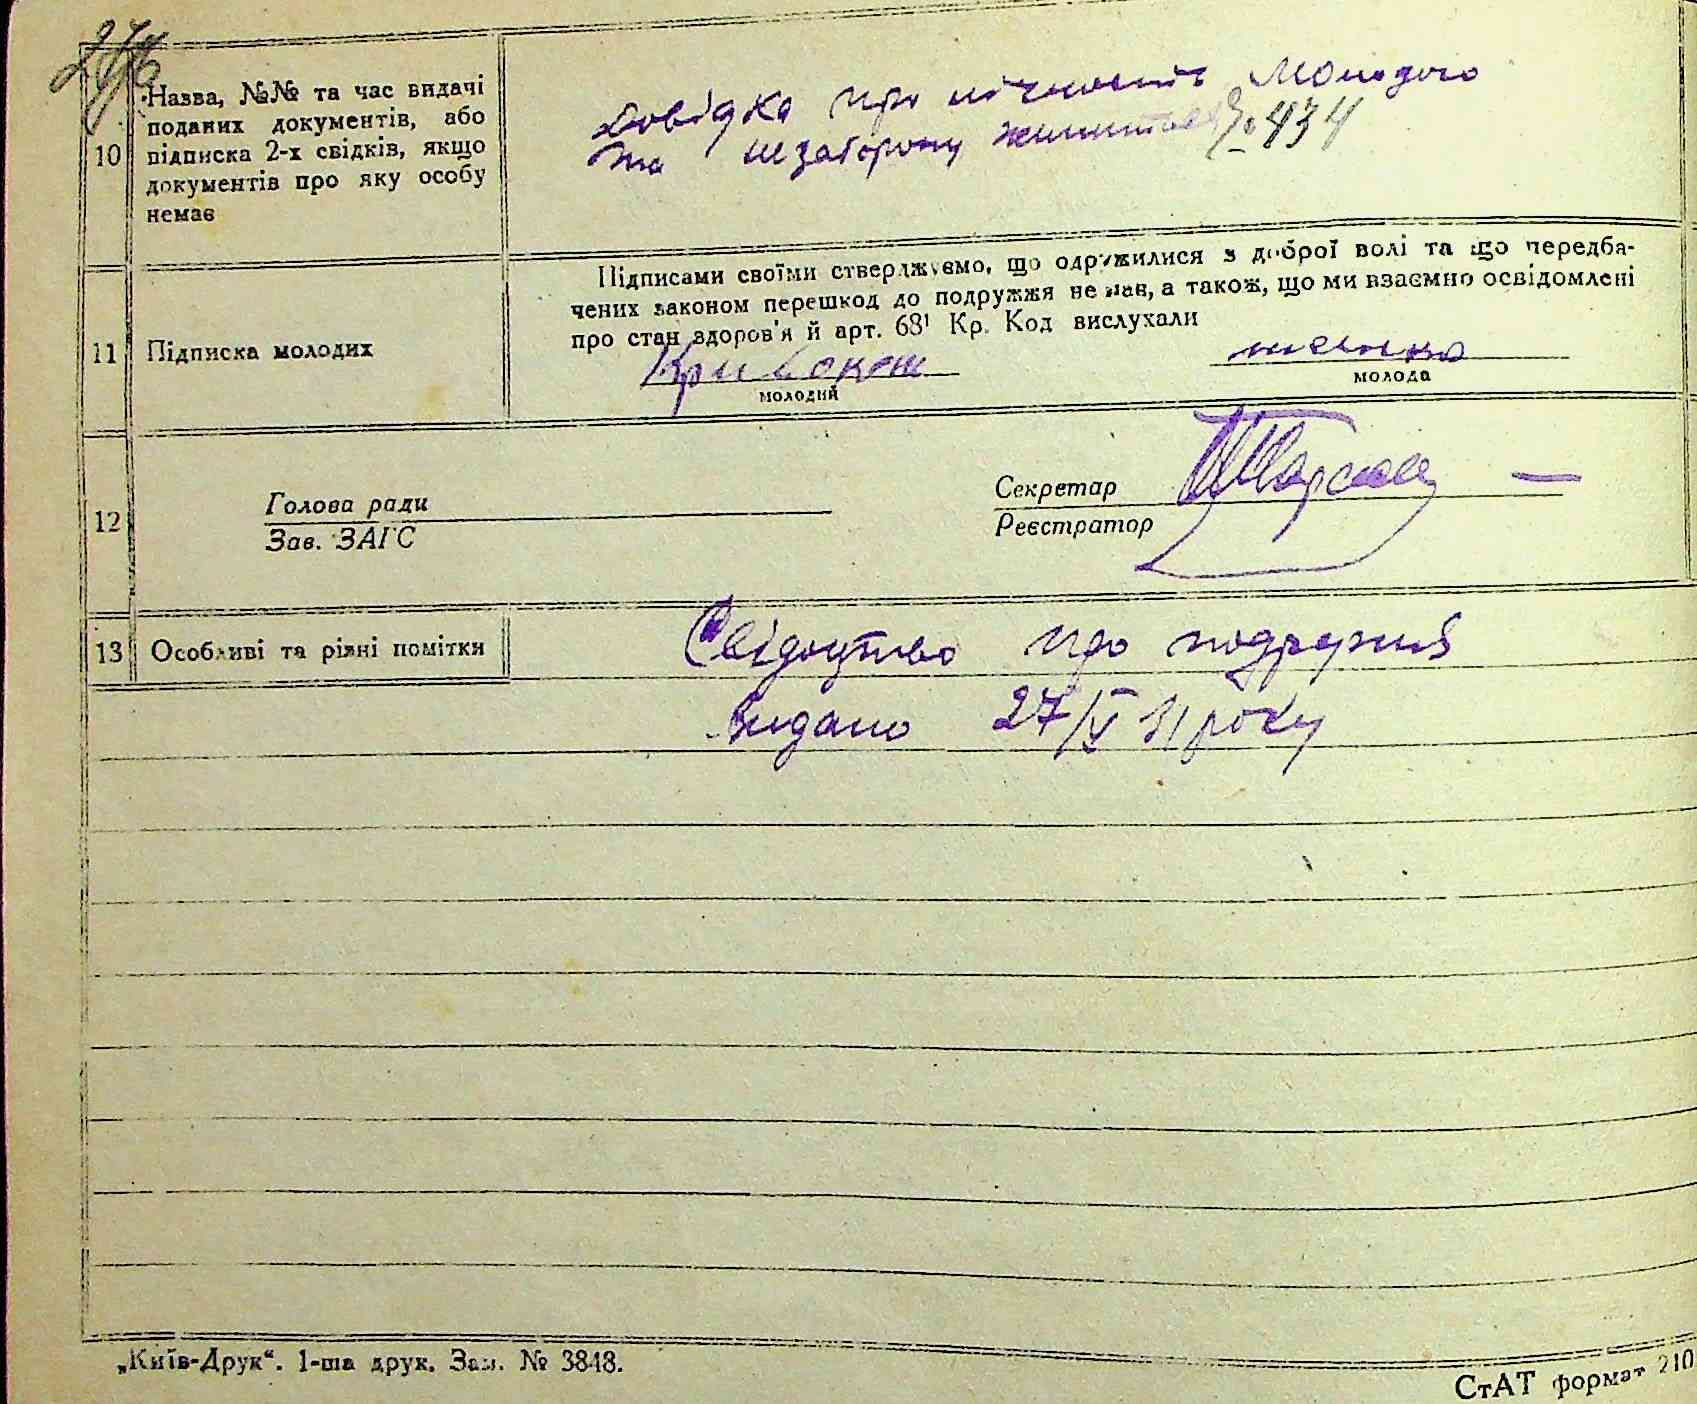 10
Назва, №№ та час видачі
поданих документів, або
підписка 2-х свідків, якщо
документів про яку особу
немає
Довідка про лічность молодого
та незаборону женитися № 434
11
Підписка молодих
Підписами своїми стверджуємо, що одружилися з доброї волі та що передба-
чених законом перешкод до подружжя не мав, а також, що ми взаємно освідомлені
про стан здоров'я й арт. 68¹ Кр. Код вислухали
Кривокож
молодий
молода
12
Голова ради
Зав. ЗАГС
Секретар
Реєстратор
13
Особливі та різні помітки
Свідоцтво про подружжя
видано 27/V 31 року
„Київ-Друк“. 1-ша друк. Зам. № 3848.
СтАТ формат 210